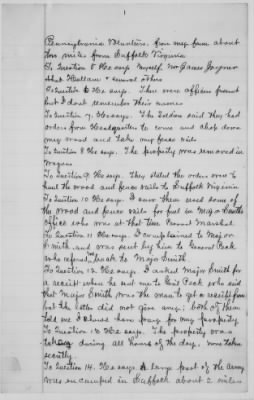 Pennsylvania Volunteers. from my farm about
two miles from Suffolk Virginia
To Question 5 He says. Myself, Mr James Joyner
and others
To Question 6 He says. There were officers present
but I dont remember their names
To Question 7. He says. The Soldiers said they had
orders from Headquarters to come and chop down
my wood and take my fence rails
To Question 8 He says. The property was removed in
wagons
To Question 9 He says. They stated the orders were to
haul the wood and fence rails to Suffolk Virginia
To Question 10 He says. I saw them used some of
the wood and fence rails for fuel in Major Smiths
office who was at that time Provost Marshal
To Question 11 He says. I complained to Major
Smith and was sent by him to General Peck
who referred me back to Major Smith
To Question 12 He says. I asked Major Smith for
a receipt when he sent me to Genl Peck who said
that Major Smith was the man to get a receipt from
but the latter did not give any; both of them
told me I should have pay for my property
To Question 13 He says. The property was
taken during all hours of the day; none taken
secretly.
To Question 14 He says. A large part of the Army
was encamped in Suffolk about 2 miles